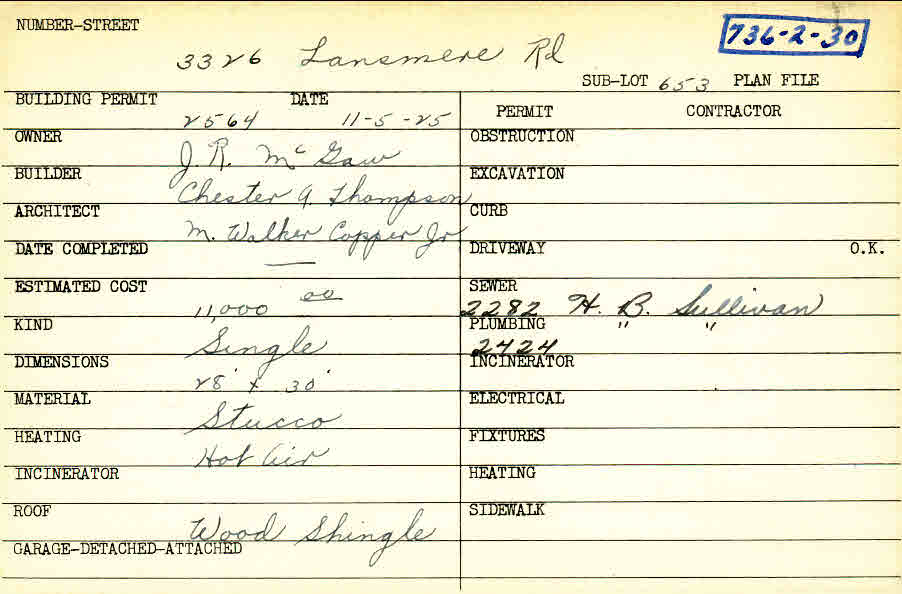 NUMBER-STREET
736-2-30
3326 Lansmere Rd
SUB-LOT 653 PLAN FILE
BUILDING PERMIT DATE
2564 11-5-25
PERMIT CONTRACTOR
OWNER
J. R. McGaw
OBSTRUCTION
BUILDER
Chester A. Thompson
EXCAVATION
ARCHITECT
M. Walker Copper Jr
CURB
DATE COMPLETED
—
DRIVEWAY O.K.
ESTIMATED COST
11,000 00
SEWER
2282 H. B. Sullivan
KIND
Single
PLUMBING " "
2424
DIMENSIONS
28' x 30'
INCINERATOR
MATERIAL
Stucco
ELECTRICAL
HEATING
Hot Air
FIXTURES
INCINERATOR
HEATING
ROOF
Wood Shingle
SIDEWALK
GARAGE-DETACHED-ATTACHED